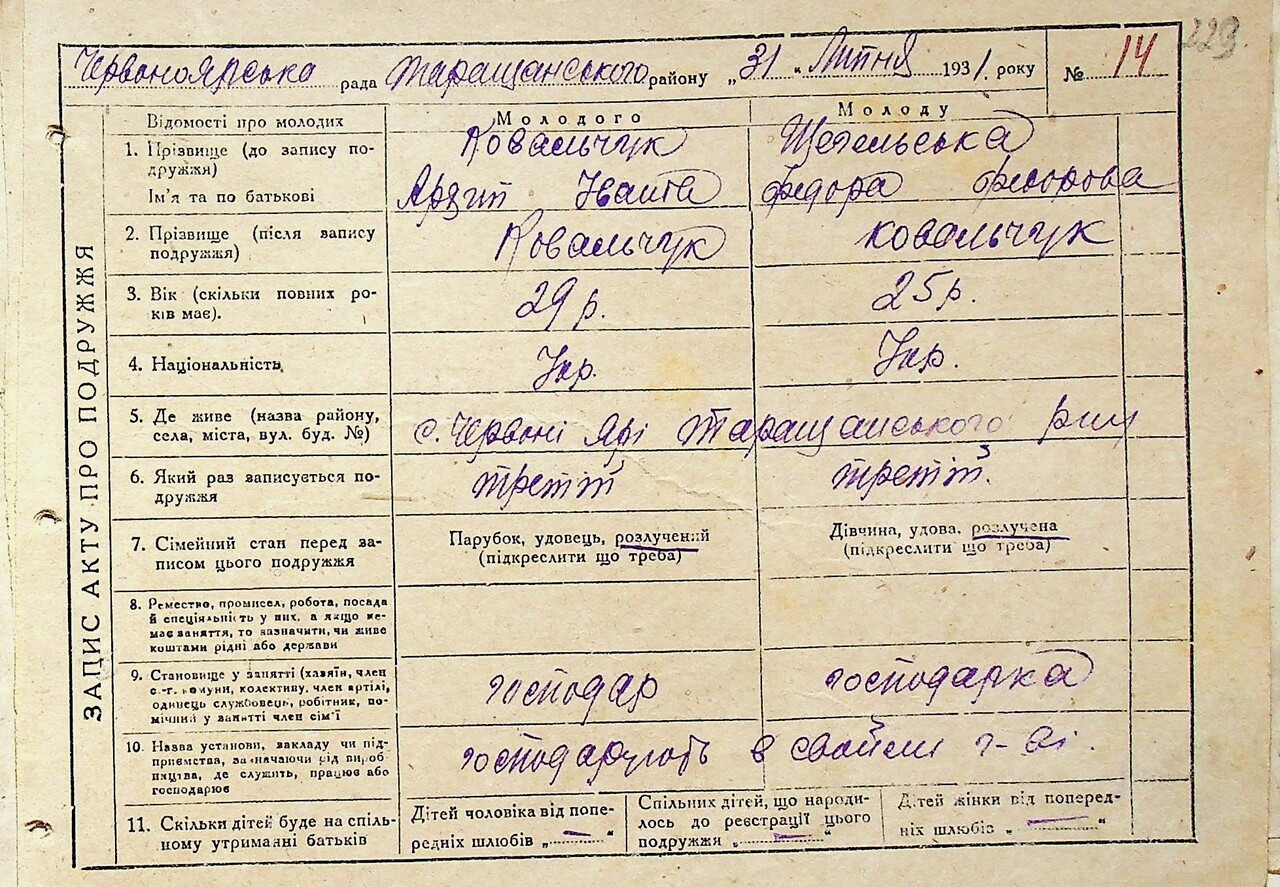 223.
Червоноярська рада Таращанського району „31" Липня 1931 року № 14
ЗАПИС АКТУ ПРО ПОДРУЖЖЯ
Відомості про молодих
Молодого
Молоду
1. Прізвище (до запису по-
дружжя)
Ковальчук
Ім'я та по батькові
Івана
Федора Федорова
2. Прізвище (після запису
подружжя)
Ковальчук
Ковальчук
3. Вік (скільки повних ро-
ків має).
29 р.
25 р.
4. Національність
Укр.
Укр.
5. Де живе (назва району,
села, міста, вул. буд. №)
с. Червоні Ярі Таращанського р-ну
6. Який раз записується по-
дружжя
третій
третій.
7. Сімейний стан перед за-
писом цього подружжя
Парубок, удовець, розлучений
(підкреслити що треба)
Дівчина, удова, розлучена
(підкреслити що треба)
8. Ремество, промисел, робота, посада
й спеціяльність у них, а якщо не-
має заняття, то зазначити, чи живе
коштами рідні або держави
9. Становище у занятті (хазяїн, член
с.-г. комуни, колективу, член артілі,
одинець службовець, робітник, по-
мічний у занятті член сім'ї
господар
господарка
10. Назва установи, закладу чи під-
приємства, зазначаючи рід вироб
ництва, де служить, працює або
господарює
господарують в свойем г-ві.
11. Скільки дітей буде на спіль-
ному утриманні батьків
Дітей чоловіка від попе-
редніх шлюбів „—"
Спільних дітей, що народи-
лось до реєстрації цього
подружжя „—"
Дітей жінки від поперед-
ніх шлюбів „—"